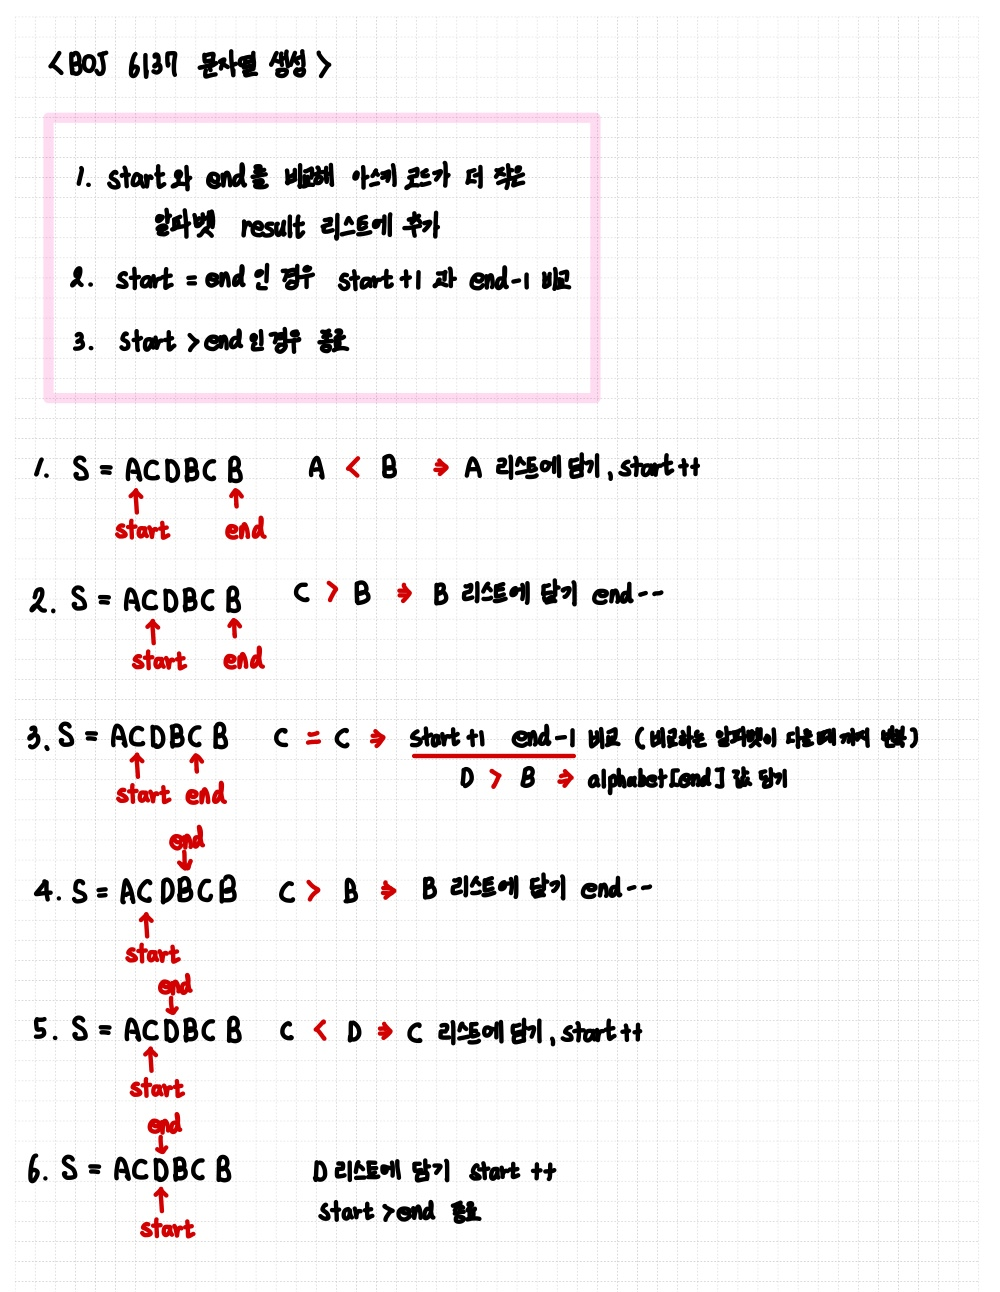 <BOJ 6137 문자열 생성>
1. start와 end를 비교해 아스키 코드가 더 작은
알파벳 result 리스트에 추가
2. start = end 인 경우 start+1 과 end-1 비교
3. start > end 인 경우 종료
1. S = ACDBCB A < B → A 리스트에 담기, start++
start end
2. S = ACDBCB C > B → B 리스트에 담기 end--
start end
3. S = ACDBCB C = C → start+1 end-1 비교 (비교하는 알파벳이 다를때 까지 반복)
D > B → alphabet[end] 값 담기
start end
end
4. S = ACDBCB C > B → B 리스트에 담기 end--
start
end
5. S = ACDBCB C < D → C 리스트에 담기, start++
start
end
6. S = ACDBCB D 리스트에 담기 start++
start > end 종료
start